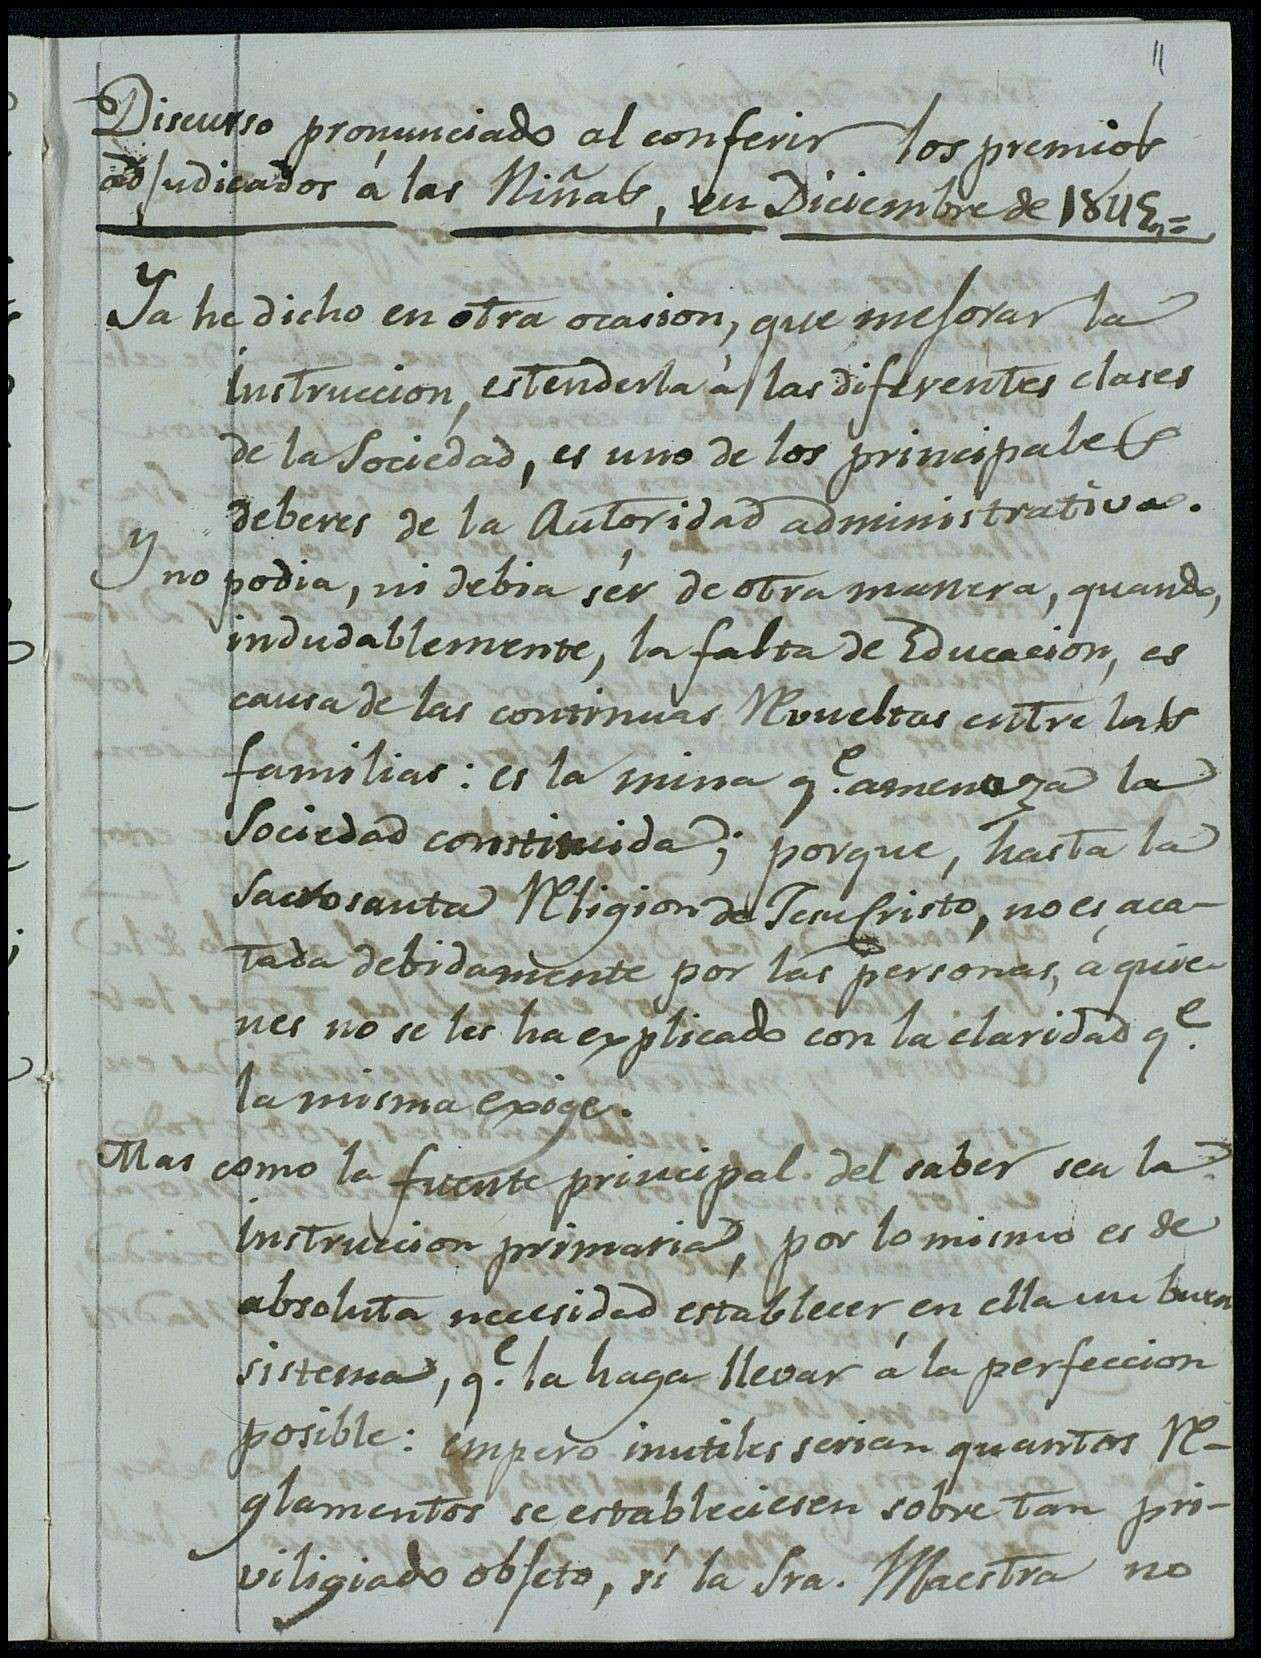 11
Discurso pronunciado al conferir los premios
adjudicados á las Niñas, en Diciembre de
Ya he dicho en otra ocasion, que mejorar la
instruccion, estenderla á las diferentes clases
de la Sociedad, es uno de los principales
deberes de la Autoridad administrativa.
Y no podia, ni debia sér de otra manera, quando,
indudablemente, la falta de Educacion, es
causa de las continuas Revueltas entre las
familias: es la mina q.e amenaza la
Sociedad constituida; porque, hasta la
Sacrosanta Religion de JesuCristo, no es aca-
tada debidamente por las personas, á quie-
nes no se les ha explicado con la claridad q.e
la misma exige.
Mas como la fuente principal del saber sea la
instruccion primaria, por lo mismo es de
absoluta necesidad establecer en ella un buen
sistema, q.e la haga llevar á la perfeccion
posible: empero inutiles serian quantos Re-
glamentos se estableciesen sobre tan pri-
viligiado objeto, sí la Sra. Maestra no